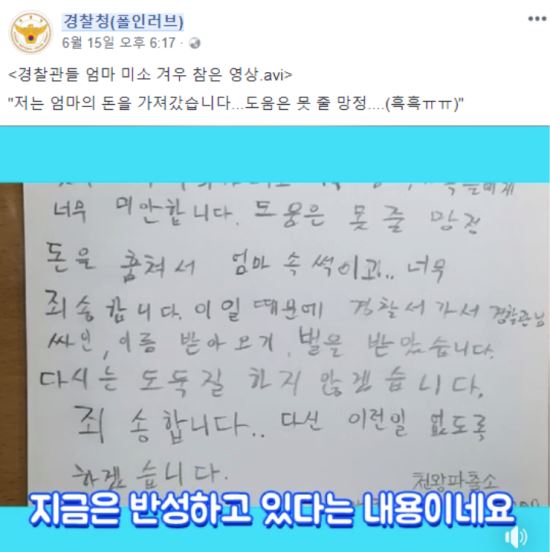 경찰청(폴인러브)
6월 15일 오후 6:17
<경찰관들 엄마 미소 겨우 참은 영상.avi>
"저는 엄마의 돈을 가져갔습니다...도움은 못 줄 망정....(흑흑ㅠㅠ)"
너무 미안합니다. 도움은 못 줄 망정
돈을 훔쳐서 엄마 속 썩이고.. 너무
죄송합니다. 이일 때문에 경찰서 가서 경찰관님
싸인, 이름 받아오기, 벌을 받았습니다.
다시는 도둑질 하지 않겠습니다.
죄송합니다.. 다신 이런일 없도록
하겠습니다.
천왕파출소
지금은 반성하고 있다는 내용이네요